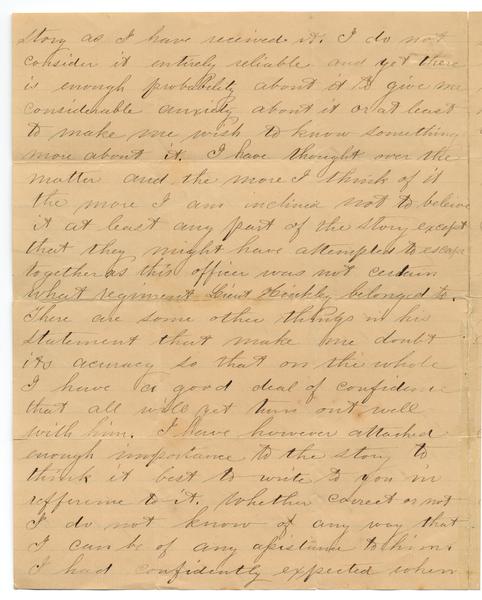 story as I have received it. I do not
consider it entirely reliable and yet there
is enough probability about it to give me
considerable anxiety about it or at least
to make me wish to know something
more about it. I have thought over the
matter and the more I think of it
the more I am inclined not to believe
it at least any part of the story except
that they might have attempted to escape
together as this officer was not certain
what regiment Lieut Hinckley belonged to.
There are some other things in his
statement that make me doubt
its accuracy so that on the whole
I have a good deal of confidence
that all will yet turn out well
with him. I have however attached
enough importance to the story to
think it best to write to you in
refference to it. Whether correct or not
I do not know of any way that
I can be of any assistance to him.
I had confidently expected when